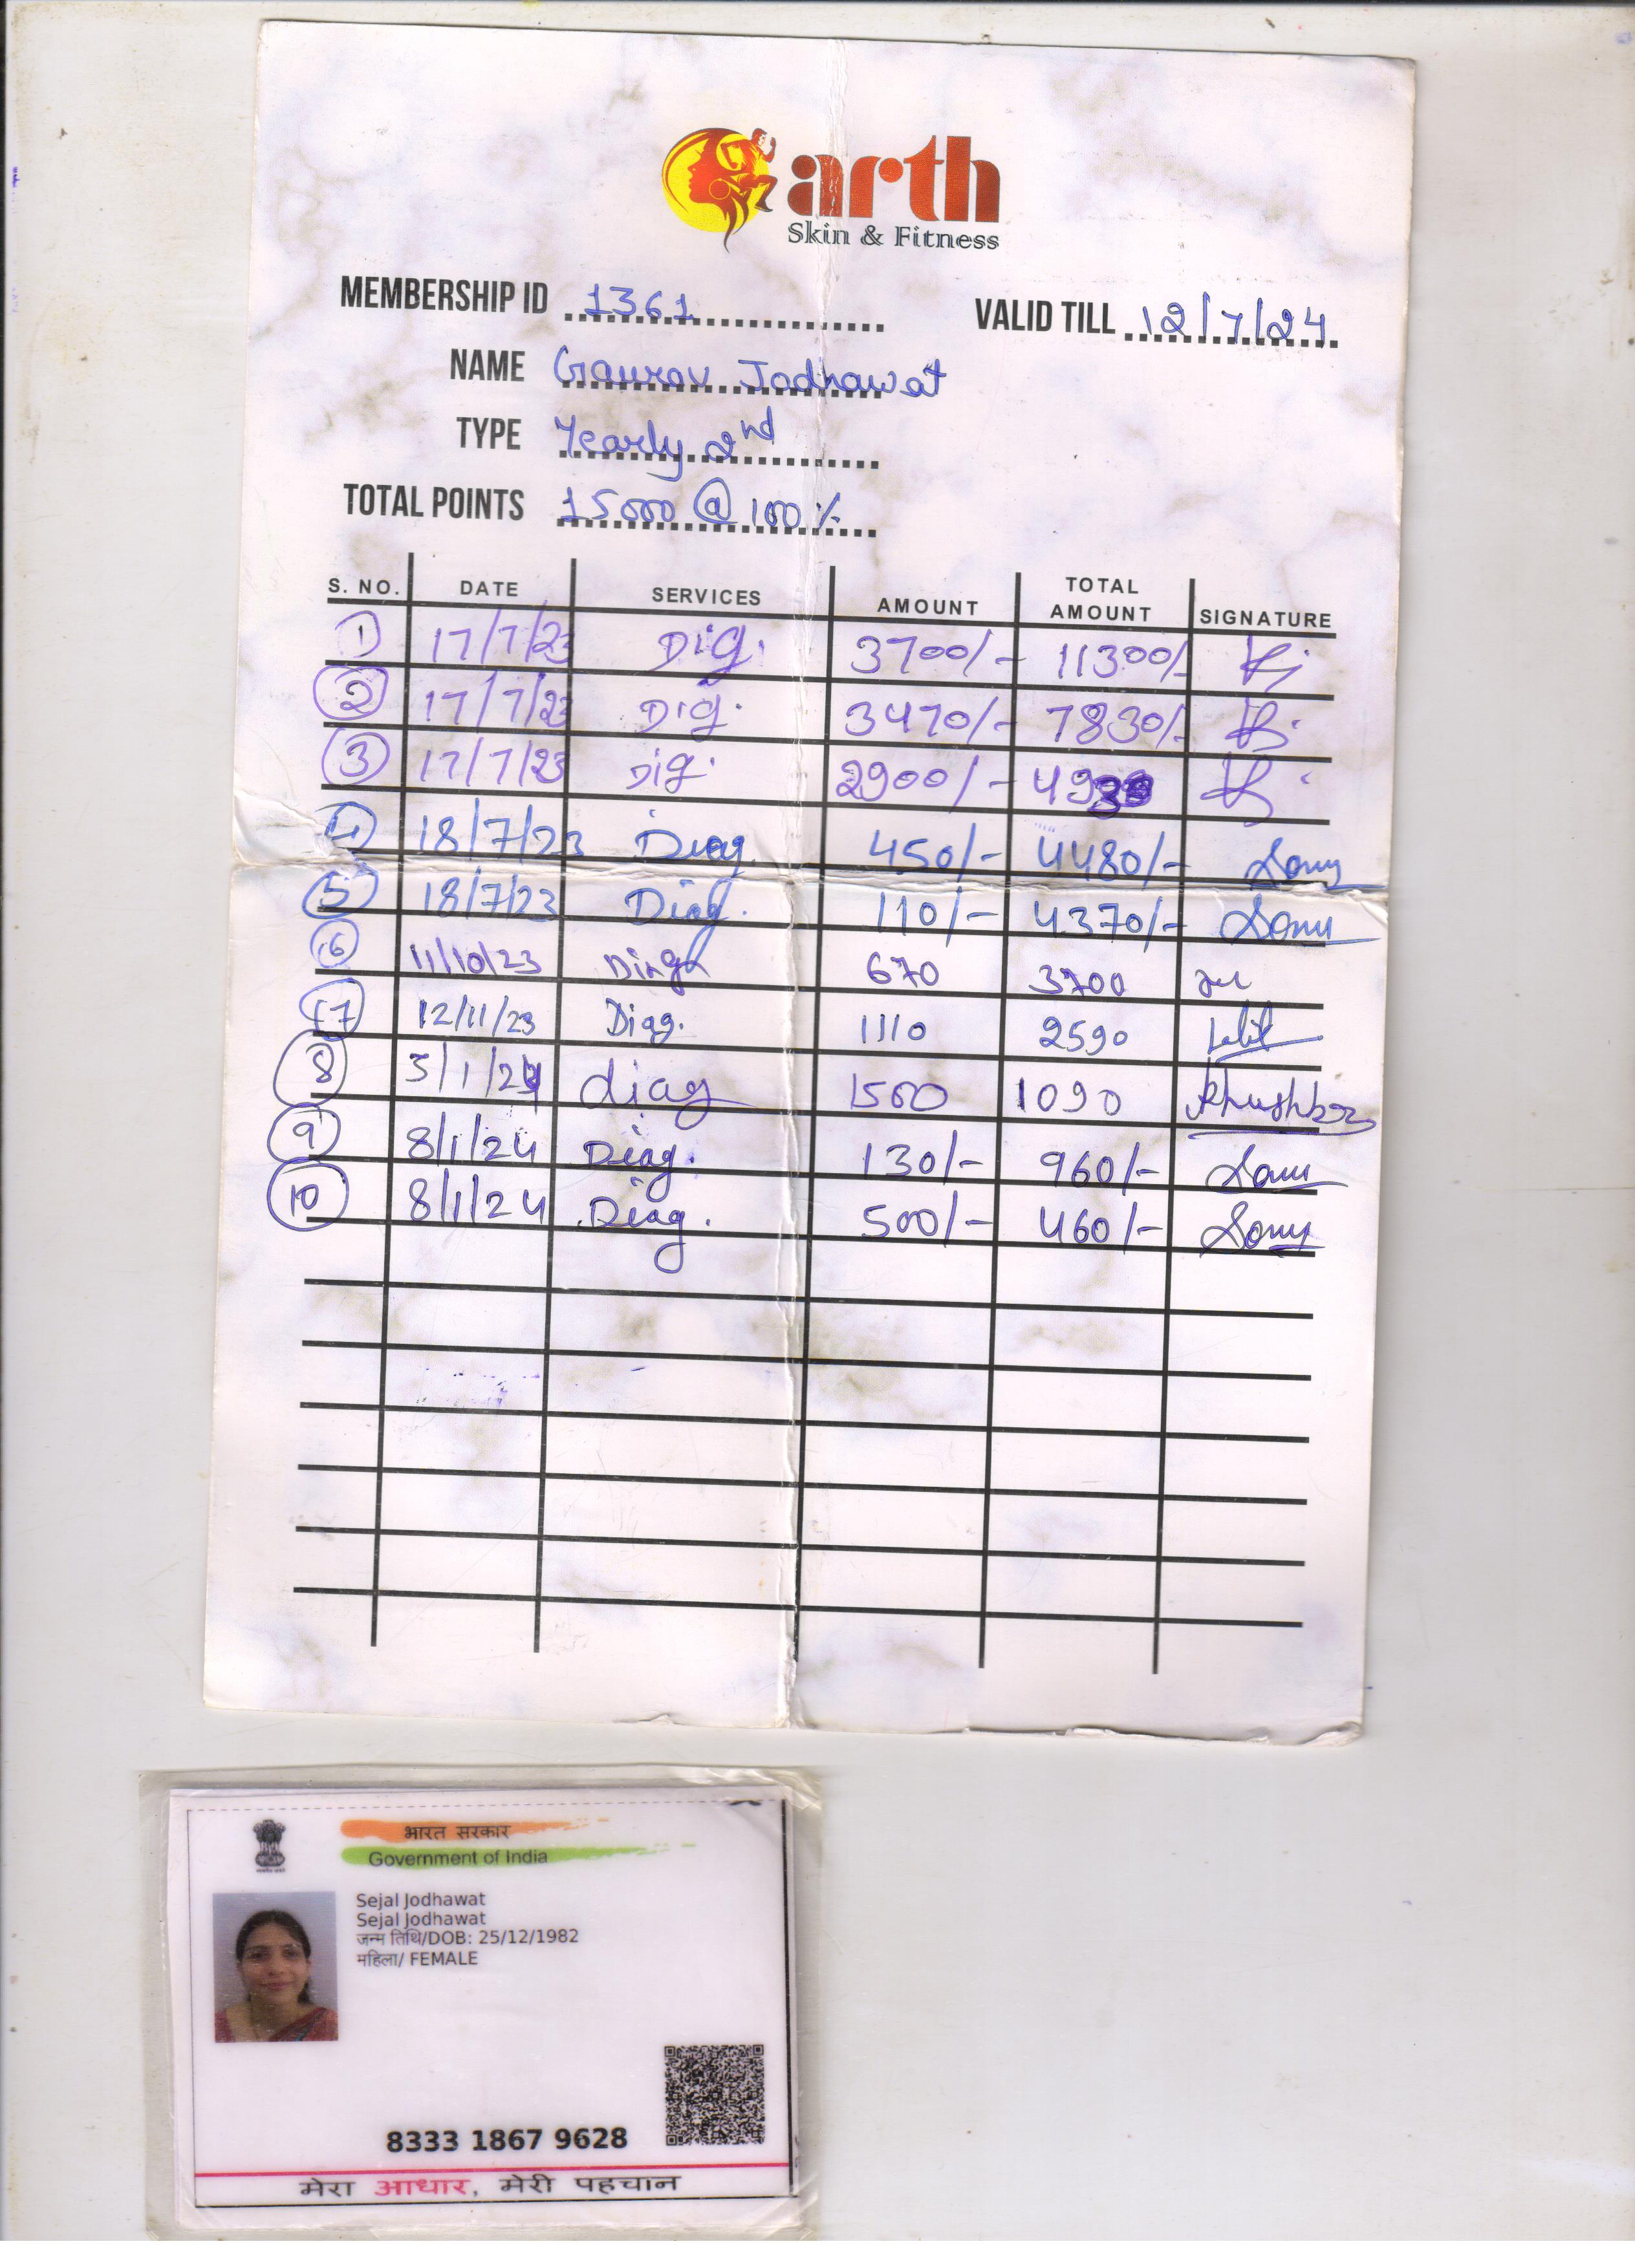 arth
Skin & Fitness
MEMBERSHIP ID 1361 VALID TILL 12/7/24
NAME Gaurav Jodhawat
TYPE Yearly 2nd
TOTAL POINTS 15000 @ 100%
S. NO. DATE SERVICES AMOUNT TOTAL AMOUNT SIGNATURE
1 17/7/23 Dig. 3700/- 11300/-
2 17/7/23 Dig. 3470/- 7830/-
3 17/7/23 Dig. 2900/- 4930
4 18/7/23 Diag. 450/- 4480/- Sonu
5 18/7/23 Diag. 110/- 4370/- Sonu
6 11/10/23 Diag 670 3700
7 12/11/23 Diag. 1110 2590 Lalit
8 5/1/24 diag 1500 1090 Khushboo
9 8/1/24 Diag. 130/- 960/- Sonu
10 8/1/24 Diag. 500/- 460/- Sonu
भारत सरकार
Government of India
Sejal Jodhawat
Sejal Jodhawat
जन्म तिथि/DOB: 25/12/1982
महिला/ FEMALE
8333 1867 9628
मेरा आधार, मेरी पहचान